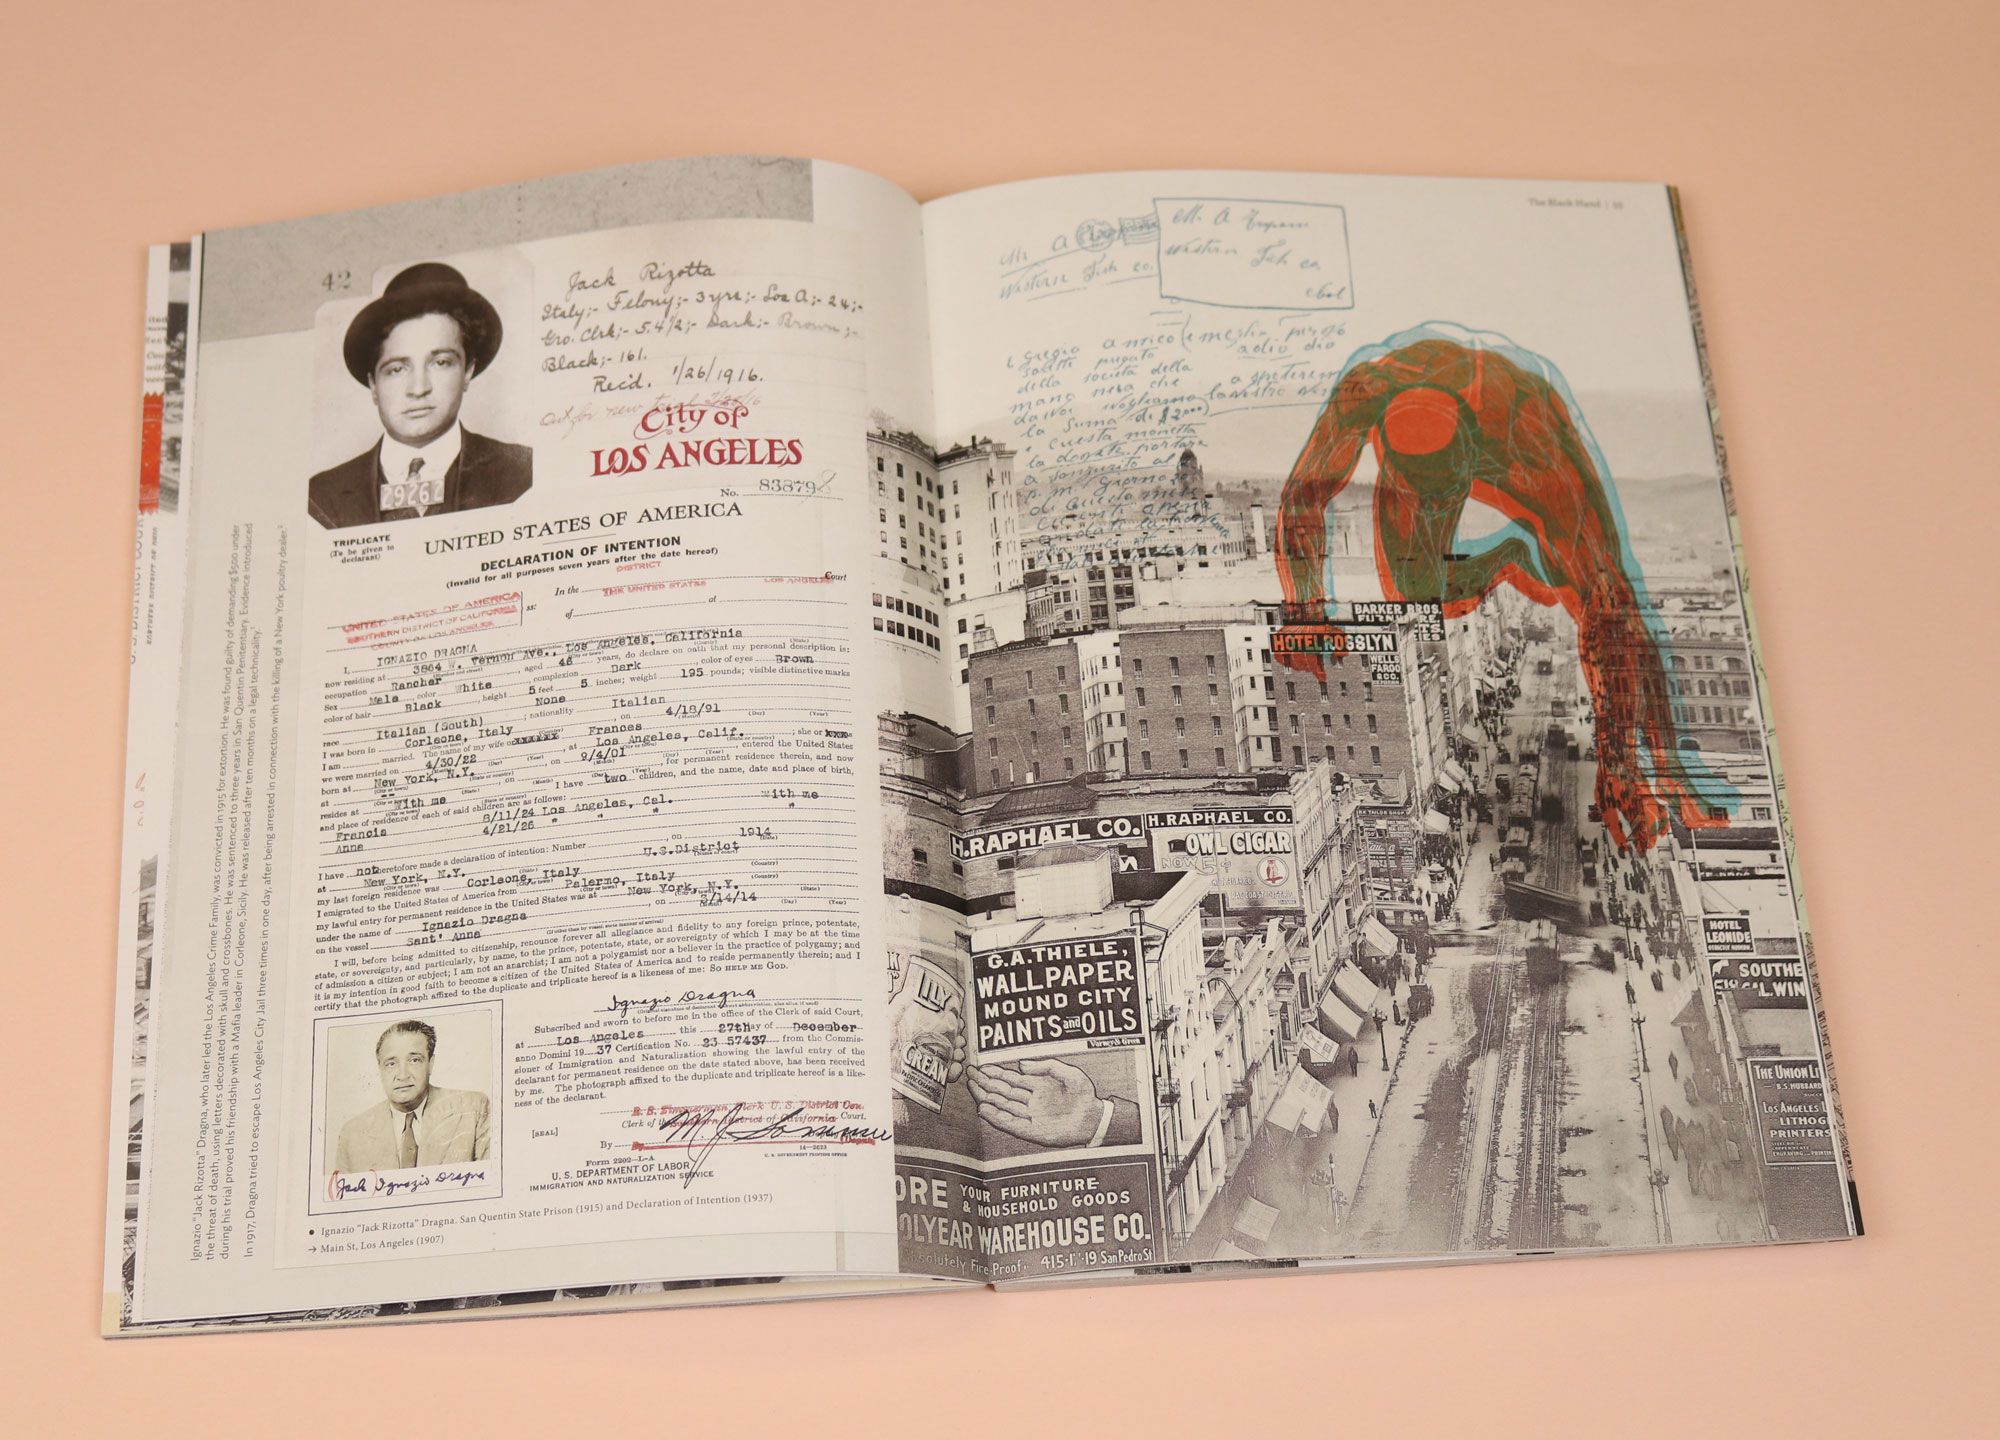 42
Jack Rizotta
Italy;- Felony;- 3yrs;- Los A;- 24;-
Gro. Clrk;- 5.4½;- Dark;- Brown;-
Black;- 161.
Rec'd. 1/26/1916.
Out for new trial
29262
City of
LOS ANGELES
No. 83879
TRIPLICATE
(To be given to
declarant)
UNITED STATES OF AMERICA
DECLARATION OF INTENTION
(Invalid for all purposes seven years after the date hereof)
DISTRICT
UNITED STATES OF AMERICA
SOUTHERN DISTRICT OF CALIFORNIA
COUNTY OF LOS ANGELES
ss:
In the THE UNITED STATES LOS ANGELES Court
of at
I, IGNAZIO DRAGNA
now residing at 3864 W. Vernon Ave., Los Angeles, California
occupation Rancher, aged 46 years, do declare on oath that my personal description is:
Sex Male, color White, complexion Dark, color of eyes Brown
color of hair Black, height 5 feet 5 inches; weight 195 pounds; visible distinctive marks
None
race Italian (South); nationality Italian
I was born in Corleone, Italy, on 4/18/91
I am married. The name of my wife Frances
we were married on 4/30/22, at Los Angeles, Calif.; she or
born at New York, N.Y., on 9/4/01, entered the United States
at, on, for permanent residence therein, and now
resides at With me. I have two children, and the name, date and place of birth,
and place of residence of each of said children are as follows:
Francis 8/11/24 Los Angeles, Cal. With me
Anna 4/21/26 " " " "
I have not heretofore made a declaration of intention: Number, on 1914
at New York, N.Y. U.S.District
my last foreign residence was Corleone, Italy
I emigrated to the United States of America from Palermo, Italy
my lawful entry for permanent residence in the United States was at New York, N.Y.
under the name of Ignazio Dragna, on 2/14/14
on the vessel Sant' Anna
I will, before being admitted to citizenship, renounce forever all allegiance and fidelity to any foreign prince, potentate,
state, or sovereignty, and particularly, by name, to the prince, potentate, state, or sovereignty of which I may be at the time
of admission a citizen or subject; I am not an anarchist; I am not a polygamist nor a believer in the practice of polygamy; and
it is my intention in good faith to become a citizen of the United States of America and to reside permanently therein; and I
certify that the photograph affixed to the duplicate and triplicate hereof is a likeness of me: SO HELP ME GOD.
Ignazio Dragna
Subscribed and sworn to before me in the office of the Clerk of said Court,
at Los Angeles this 27th day of December
anno Domini 19 37 Certification No. 23 57437 from the Commis-
sioner of Immigration and Naturalization showing the lawful entry of the
declarant for permanent residence on the date stated above, has been received
by me. The photograph affixed to the duplicate and triplicate hereof is a like-
ness of the declarant.
R. S. Zimmerman, Clerk U. S. District Cou
Clerk of the Southern District of California Court.
[SEAL]
By
14-2623
U. S. GOVERNMENT PRINTING OFFICE
Form 2202-L-A
U. S. DEPARTMENT OF LABOR
IMMIGRATION AND NATURALIZATION SERVICE
(Jack) Ignazio Dragna
● Ignazio "Jack Rizotta" Dragna. San Quentin State Prison (1915) and Declaration of Intention (1937)
→ Main St, Los Angeles (1907)
Ignazio "Jack Rizotta" Dragna, who later led the Los Angeles Crime Family, was convicted in 1915 for extortion. He was found guilty of demanding $500 under
the threat of death, using letters decorated with skull and crossbones. He was sentenced to three years in San Quentin Penitentiary. Evidence introduced
during his trial proved his friendship with a Mafia leader in Corleone, Sicily. He was released after ten months on a legal technicality.¹
In 1917, Dragna tried to escape Los Angeles City Jail three times in one day, after being arrested in connection with the killing of a New York poultry dealer.²
The Black Hand | 55
Mr A
Western Fish co.
M. A
Western Fish co.
della società della
mano nera che
la Suma di $
questa monetta
BARKER BROS.
HOTEL ROSSLYN
WELLS
FARGO
& CO.
H.RAPHAEL CO.
H.RAPHAEL CO.
OWL CIGAR
NOW 5¢
G.A.THIELE,
WALLPAPER
MOUND CITY
PAINTS and OILS
Varney & Green
LILY
CREAM
ORE YOUR FURNITURE
& HOUSEHOLD GOODS
OLYEAR WAREHOUSE CO.
solutely Fire-Proof. 415-1'-19 San Pedro St
HOTEL
LEONIDE
SOUTHE
CAL.WIN
THE UNION LI
B.S. HUBBAR
LOS ANGELES L
LITHOG
PRINTERS